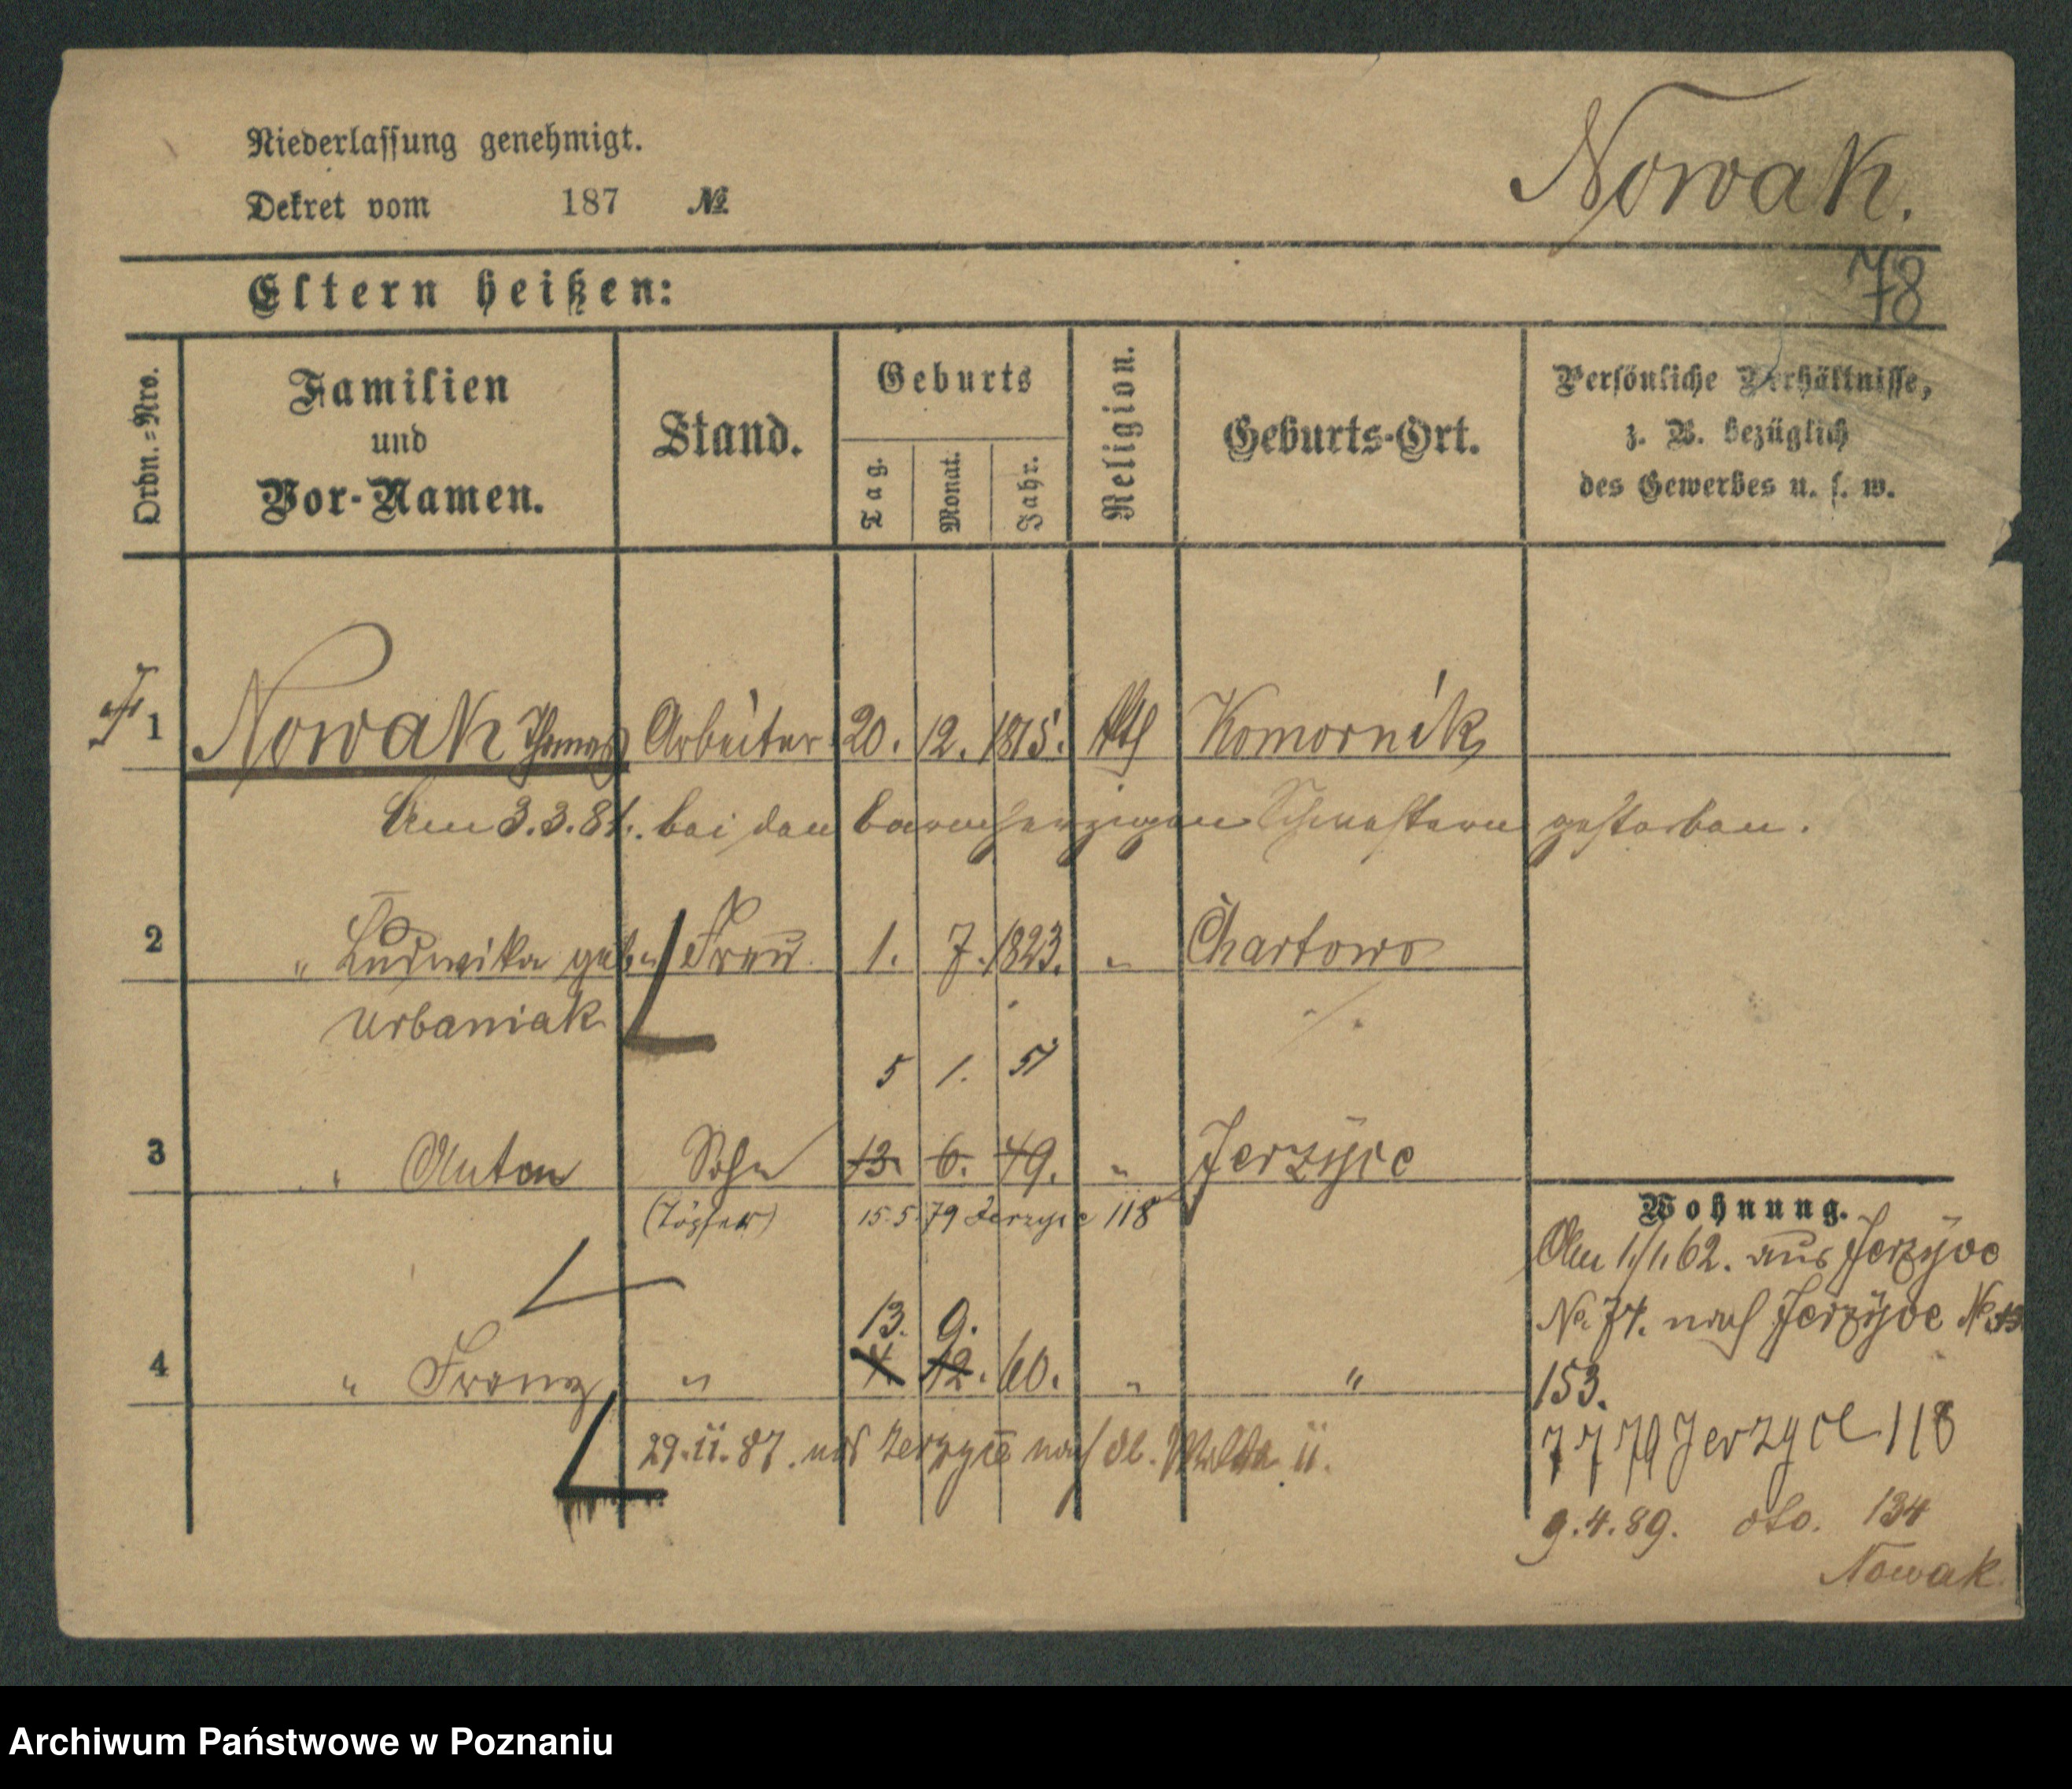 Niederlassung genehmigt.
Dekret vom 187 №
Nowak.
78
Eltern heißen:
Ordn.=Nro.
Familien
und
Vor-Namen.
Stand.
Geburts
Tag.
Monat.
Jahr.
Religion.
Geburts-Ort.
Persönliche Verhältnisse,
z. B. bezüglich
des Gewerbes u. s. w.
1 Nowak Thomas Arbeiter 20. 12. 1815. kth Komornik
Am 3.3.81. bei den barmherzigen Schwestern gestorben.
2 " Ludwika geb. Frau 1. 7. 1823. " Chartowo
Urbaniak
5 1. 51
3 " Anton Sohn 13. 6. 49. " Jerzyce
(Töpfer) 15.5.79 Jerzyce 118
13. 9.
4 " Franz " 12. 60. " "
29.11.87. aus Jerzyce nach Ob. Wilda 11.
Wohnung.
Am 1/1.62. aus Jerzyce
No. 74. nach Jerzyce No.
153.
7 7 79 Jerzyce 118
9.4.89. dto. 134
Nowak
Archiwum Państwowe w Poznaniu